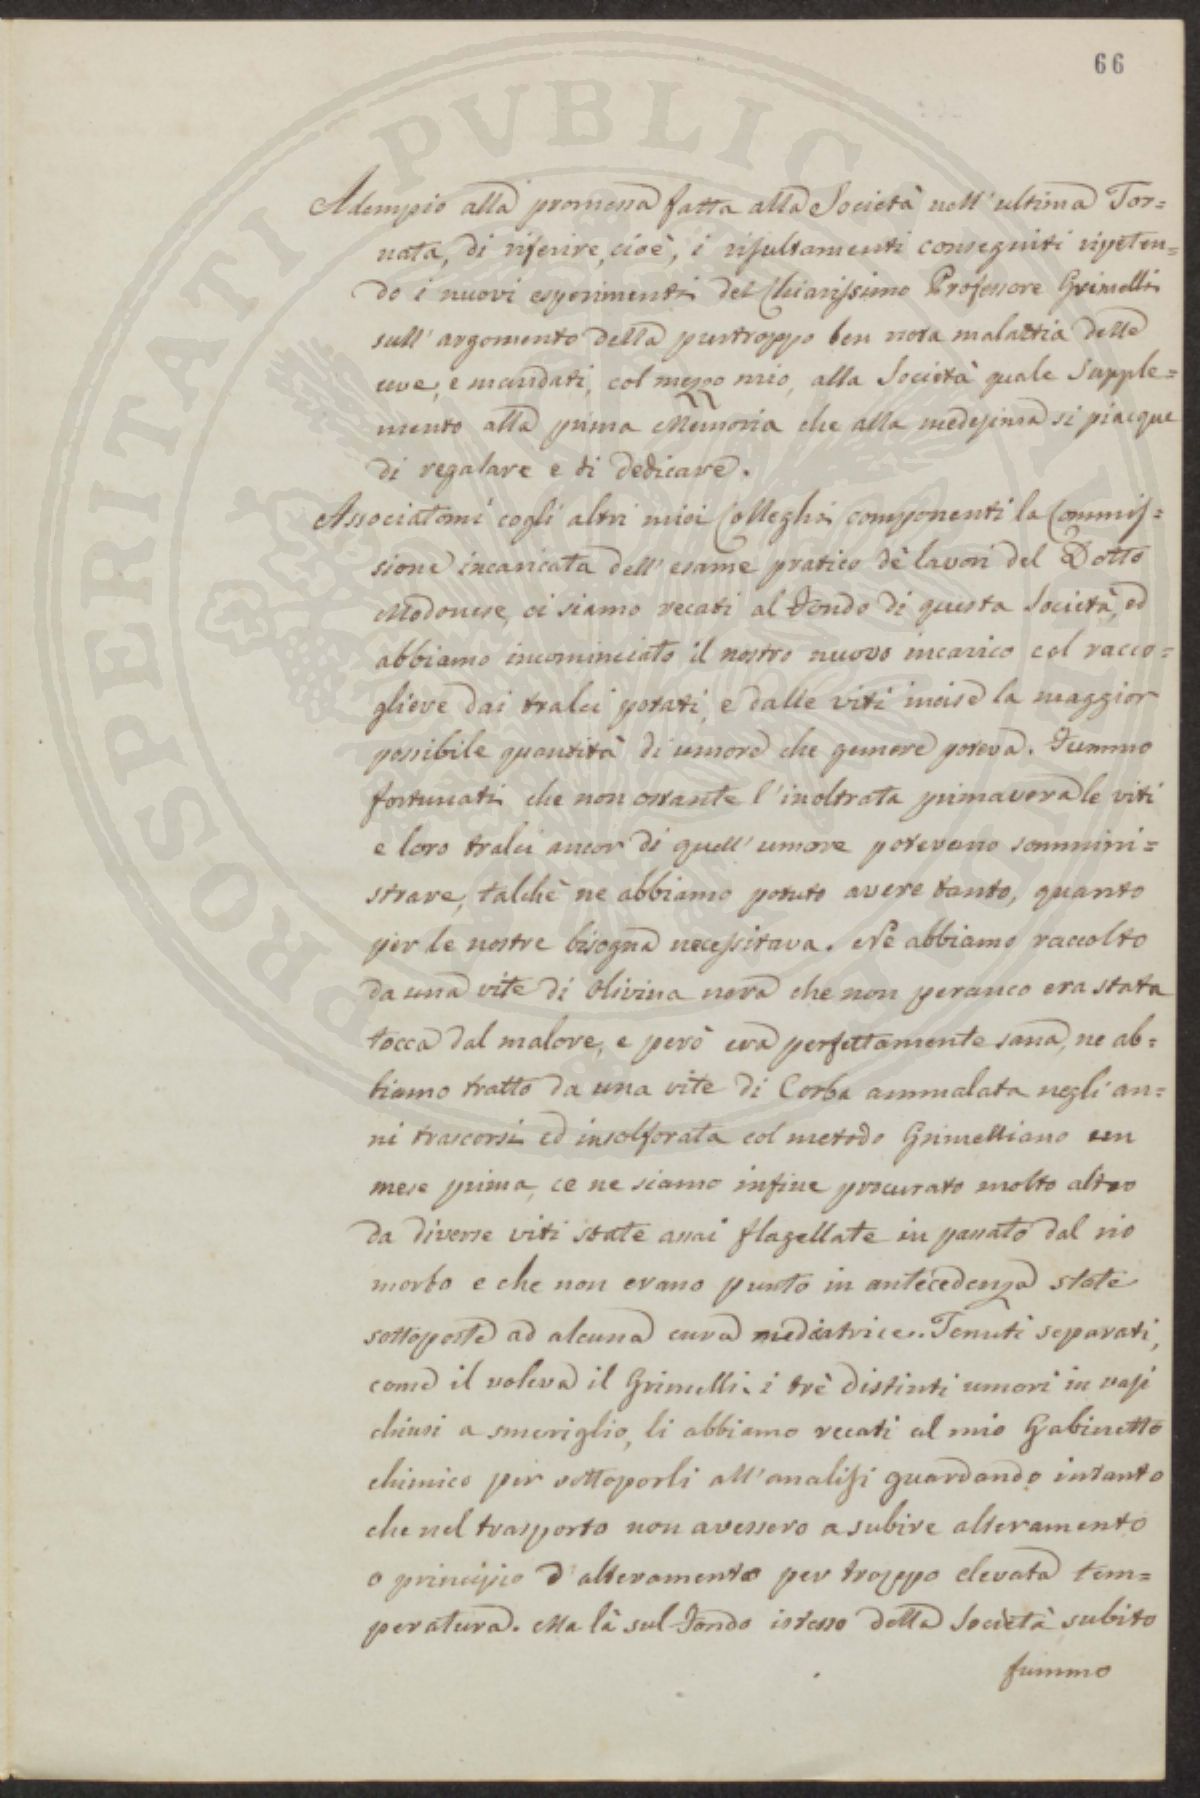 66
PROSPERITATI PUBLIC
Adempio alla promessa fatta alla Società nell'ultima Tor=
nata, di riferire, cioè, i risultamenti conseguiti ripeten=
do i nuovi esperimenti del Chiarissimo Professore Grimelli
sull'argomento della purtroppo ben nota malattia delle
uve, e mandati, col mezzo mio, alla Società quale Supple=
mento alla prima Memoria che alla medesima si piacque
di regalare e di dedicare.
Associatomi cogli altri miei Colleghi componenti la Commis=
sione incaricata dell'esame pratico de' lavori del Dotto
Modonese, ci siamo recati al Fondo di questa Società, ed
abbiamo incominciato il nostro nuovo incarico col racco=
gliere dai tralci potati, e dalle viti incise la maggior
possibile quantità di umore che gemere poteva. Fummo
fortunati che non ostante l'inoltrata primavera le viti
e loro tralci ancor di quell'umore potevano sommini=
strare, talchè ne abbiamo potuto avere tanto, quanto
per le nostre bisogna necessitava. Ne abbiamo raccolto
da una vite di Olivina nera che non peranco era stata
tocca dal malore, e però era perfettamente sana, ne ab=
biamo tratto da una vite di Corba ammalata negli an=
ni trascorsi ed insolforata col metodo Grimelliano un
mese prima, ce ne siamo infine procurato molto altro
da diverse viti state assai flagellate in passato dal rio
morbo e che non erano punto in antecedenza state
sottoposte ad alcuna cura mediatrice. Tenuti separati,
come il voleva il Grimelli, i trè distinti umori in vasi
chiusi a smeriglio, li abbiamo recati al mio Gabinetto
chimico per sottoporli all'analisi guardando intanto
che nel trasporto non avessero a subire alteramento
o principio d'alteramento per troppo elevata tem=
peratura. Ma là sul Fondo istesso della Società subito
fummo